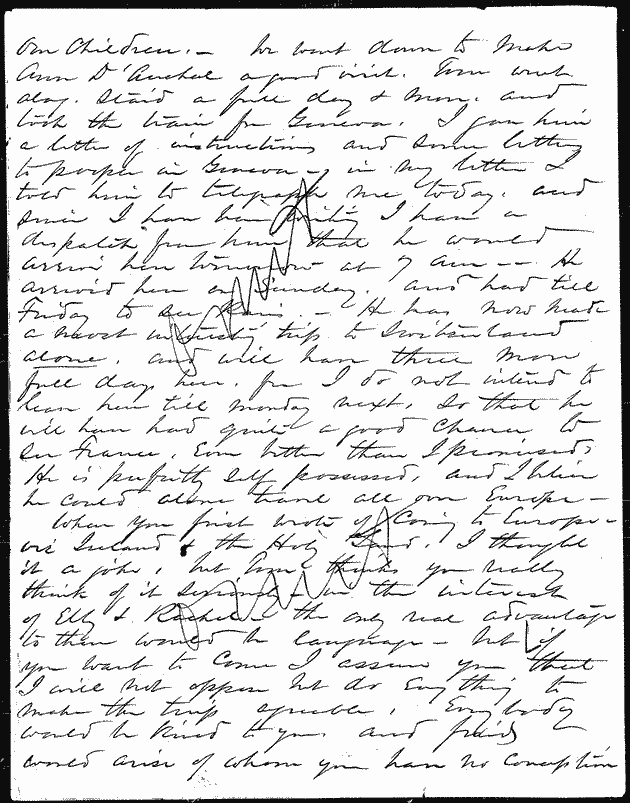 Our Children. — We went down to make
Ann D'Auchel a good visit. Tom went
along. Staid a full day & more. and
took the train for Geneva. I gave him
a letter of instructions and some letters
to people in Geneva — in my letter I
told him to telegraph me today. and
since I have been writing I have a
dispatch from him that he would
arrive here tomorrow at 7 am — He
arrived here on Sunday. and had till
Friday to see Paris. — He has now made
a most interesting trip to Switzerland
alone. and will have three more
full days here. for I do not intend to
leave here till monday next. so that he
will have had quite a good chance to
see France. Even better than I promised.
He is perfectly self possessed. and I believe
he could alone travel all over Europe —
When you first wrote of Coming to Europe —
via Ireland & the Holy Land. I thought
it a joke, but Tom thinks you really
think of it seriously — in the interest
of Elly & Rachel — the only real advantage
to them would be language — but if
you want to Come I assure you that
I will not oppose but do Everything to
make the trip agreeable. Everybody
would be kind to you and friends
would arise of whom you have no conception